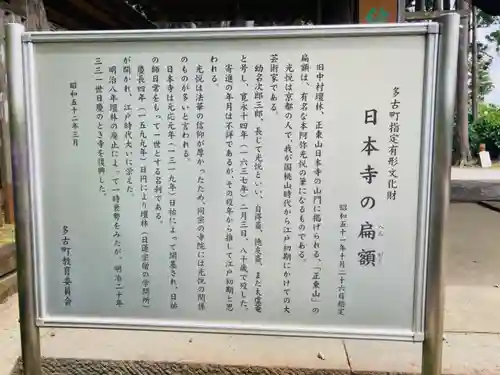 多古町指定有形文化財
日本寺の扁額
へん がく
昭和五十一年十月二十六日指定
旧中村壇林、正東山日本寺の山門に掲げられる、「正東山」の
扁額は、有名な本阿弥光悦の筆になるものである。
光悦は京都の人で、我が国桃山時代から江戸初期にかけての大
芸術家である。
幼名次郎三郎、長じて光悦といい、自得斎、徳友斎、また太虚庵
と号し、寛永十四年(一六三七年)二月三日、八十歳で歿した。
寄進の年月は不詳であるが、その歿年から推して江戸初期と思
われる。
光悦は法華の信仰が厚かったため、同宗の寺院には光悦の関係
のものが多いと言われる。
日本寺は元応元年(一三一九年)日祐によって開基され、日祐
の師日常をもって一世とする名刹である。
慶長四年(一五九九年)日円により壇林(日蓮宗僧の学問所)
が開かれ、江戸時代大いに栄えた。
明治八年壇林の廃止によって一時衰勢をみたが、明治二十年
三三一世日慶のとき寺を復興した。
昭和五十二年三月
多古町教育委員会